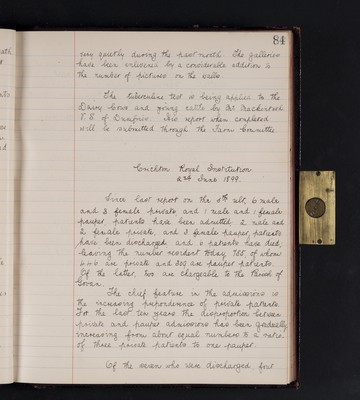 84
very quietly during the past month. The galleries
have been enlivened by a considerable addition to
the number of pictures on the walls.
The tuberculine test is being applied to the
Dairy Cows and young cattle by Mr
V.S. of Dumfries. His report when completed
will be submitted through the Farm Committee.
Crichton Royal Institution
2nd June 1899.
Since last report on the 5th ult, 6 male
and 3 female private, and 1 male and 1 female
pauper, patients have been admitted, 2 male and
2 female private, and 3 female pauper, patients
have been discharged and 6 patients have died;
leaving the number resident today 755, of whom
are private and are pauper patients.
Of the latter, two are chargeable to the Parish of
Govan.
The chief feature in the admissions is
the increasing preponderance of private patients.
For the last ten years the disproportion between
private and pauper admissions has been gradually
increasing from about equal numbers to a ratio
of three private patients to one pauper.
Of the seven who were discharged, four